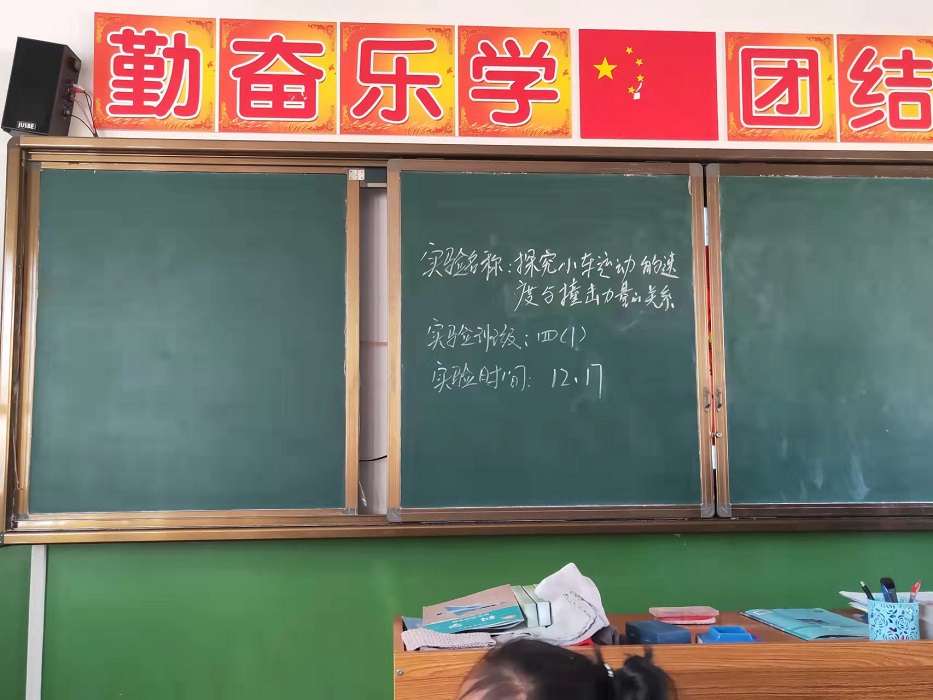 勤奋乐学
团结
JUSBE
实验名称:探究小车运动的速
度与撞击力量的关系
实验班级:四(1)
实验时间:12.17